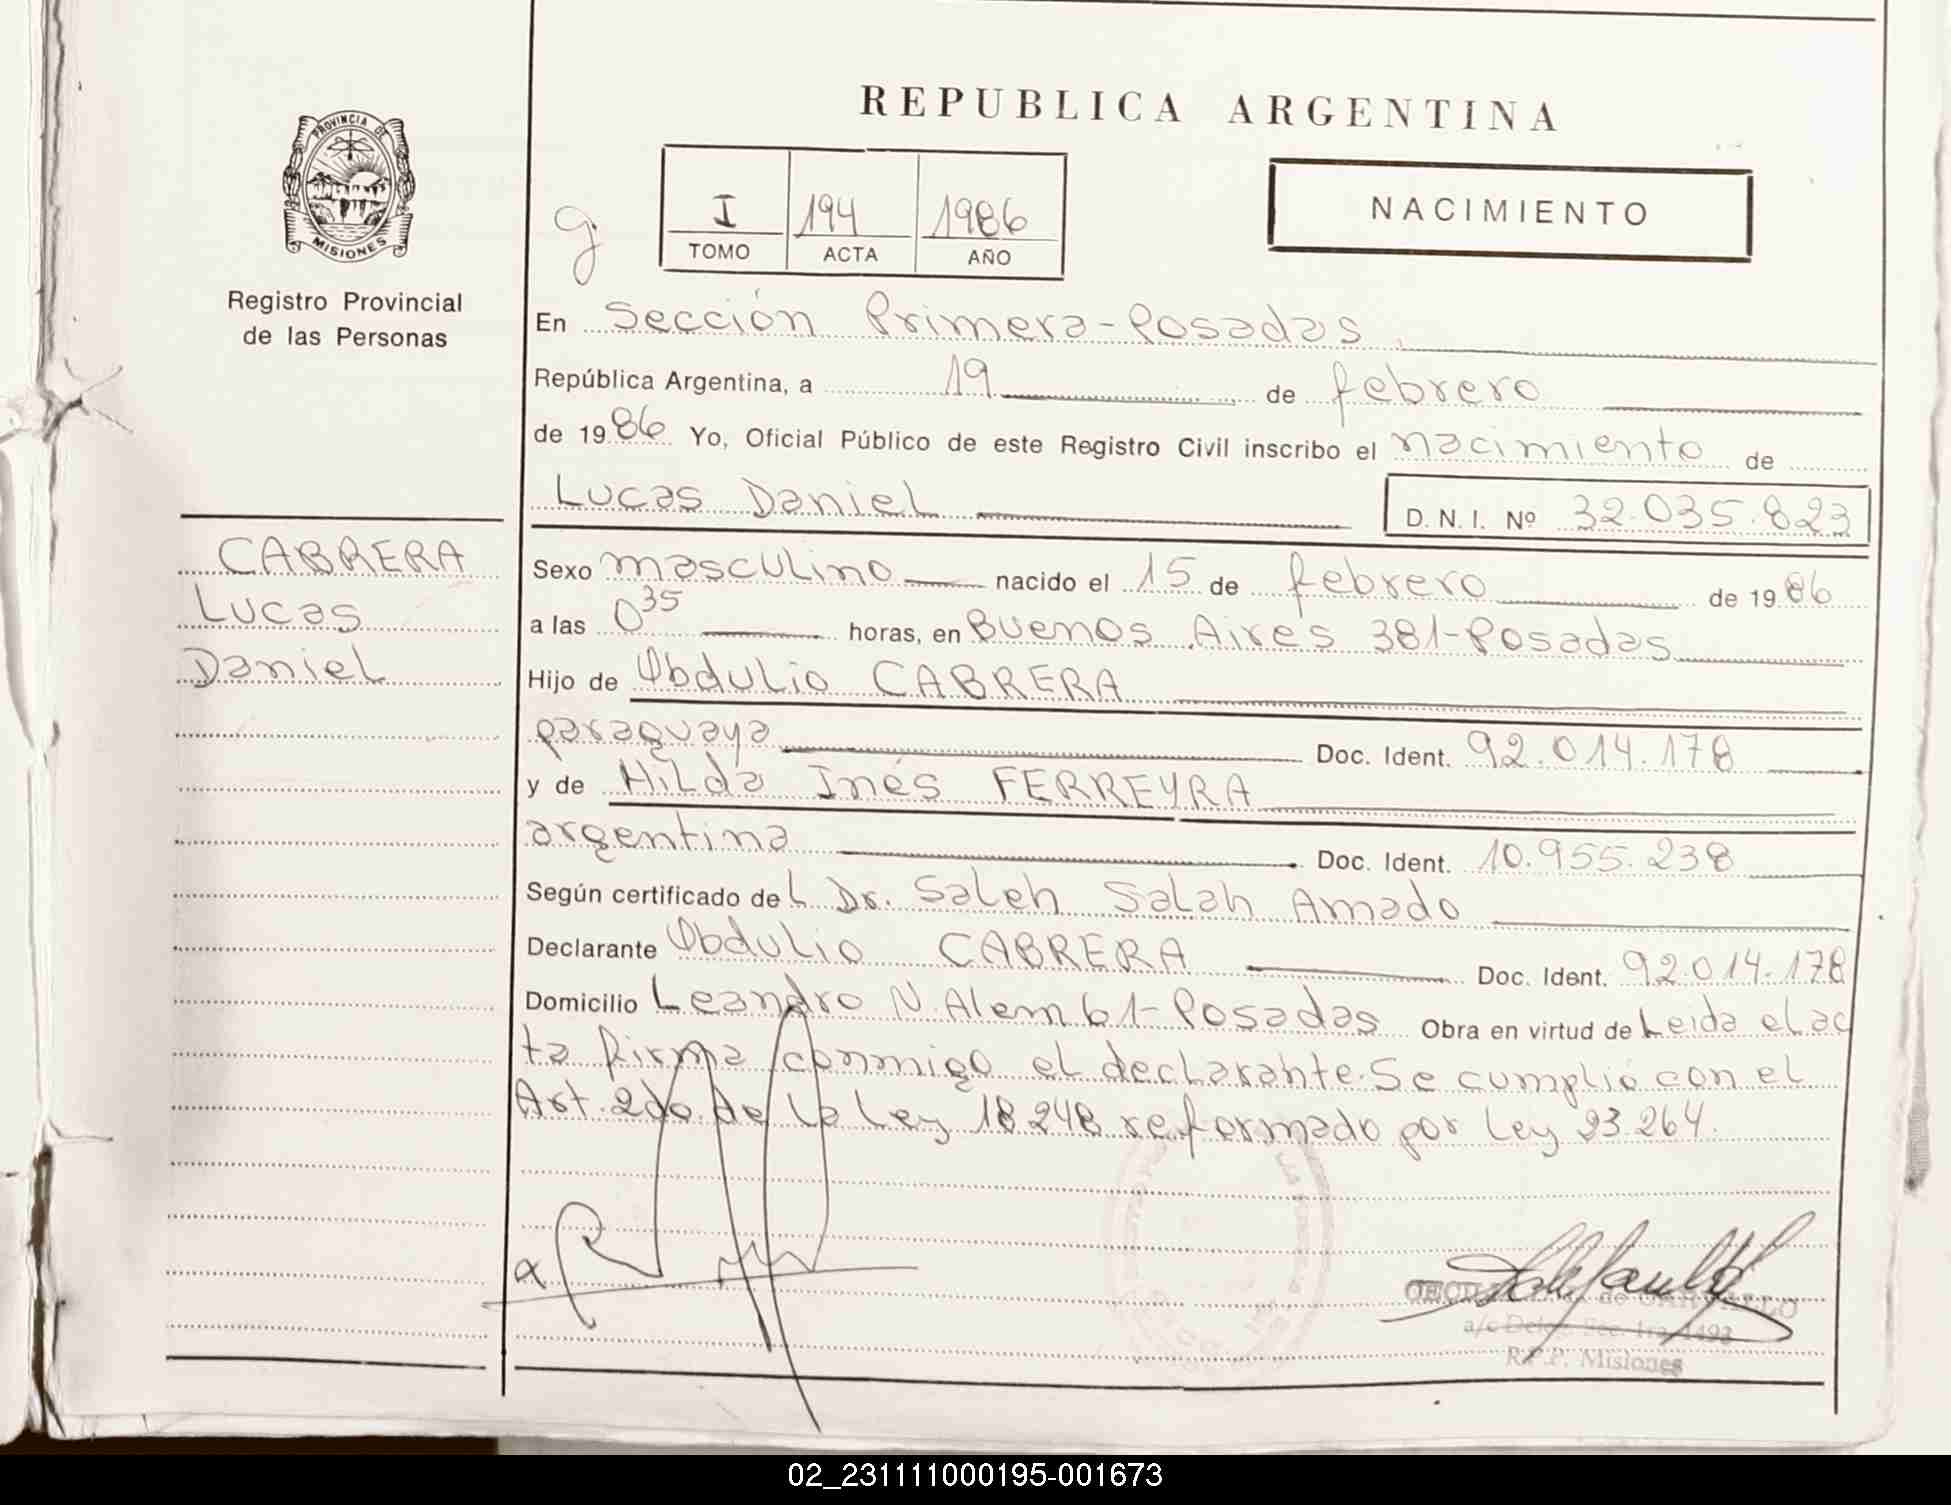 REPUBLICA ARGENTINA
PROVINCIA DE
MISIONES
Registro Provincial
de las Personas
g
I 194 1986
TOMO ACTA AÑO
NACIMIENTO
En Sección Primera-Posadas
República Argentina, a 19 de febrero
de 1986 Yo, Oficial Público de este Registro Civil inscribo el nacimiento de
Lucas Daniel D. N. I. Nº 32.035.823
CABRERA
Lucas
Daniel
Sexo masculino nacido el 15 de febrero de 1986
a las 0 35 horas, en Buenos Aires 381-Posadas
Hijo de Obdulio CABRERA
paraguaya Doc. Ident. 92.014.178
y de Hilda Inés FERREYRA
argentina Doc. Ident. 10.955.238
Según certificado de L Dr. Saleh Salah Amado
Declarante Obdulio CABRERA Doc. Ident. 92.014.178
Domicilio Leandro N. Alem 61-Posadas Obra en virtud de Leida el ac
ta firma conmigo el declarante. Se cumplió con el
Art. 2do. de la Ley 18.248 reformado por Ley 23.264.
a/c Deleg. Sec. 1ra. 1493
R.P.P. Misiones
02_231111000195-001673